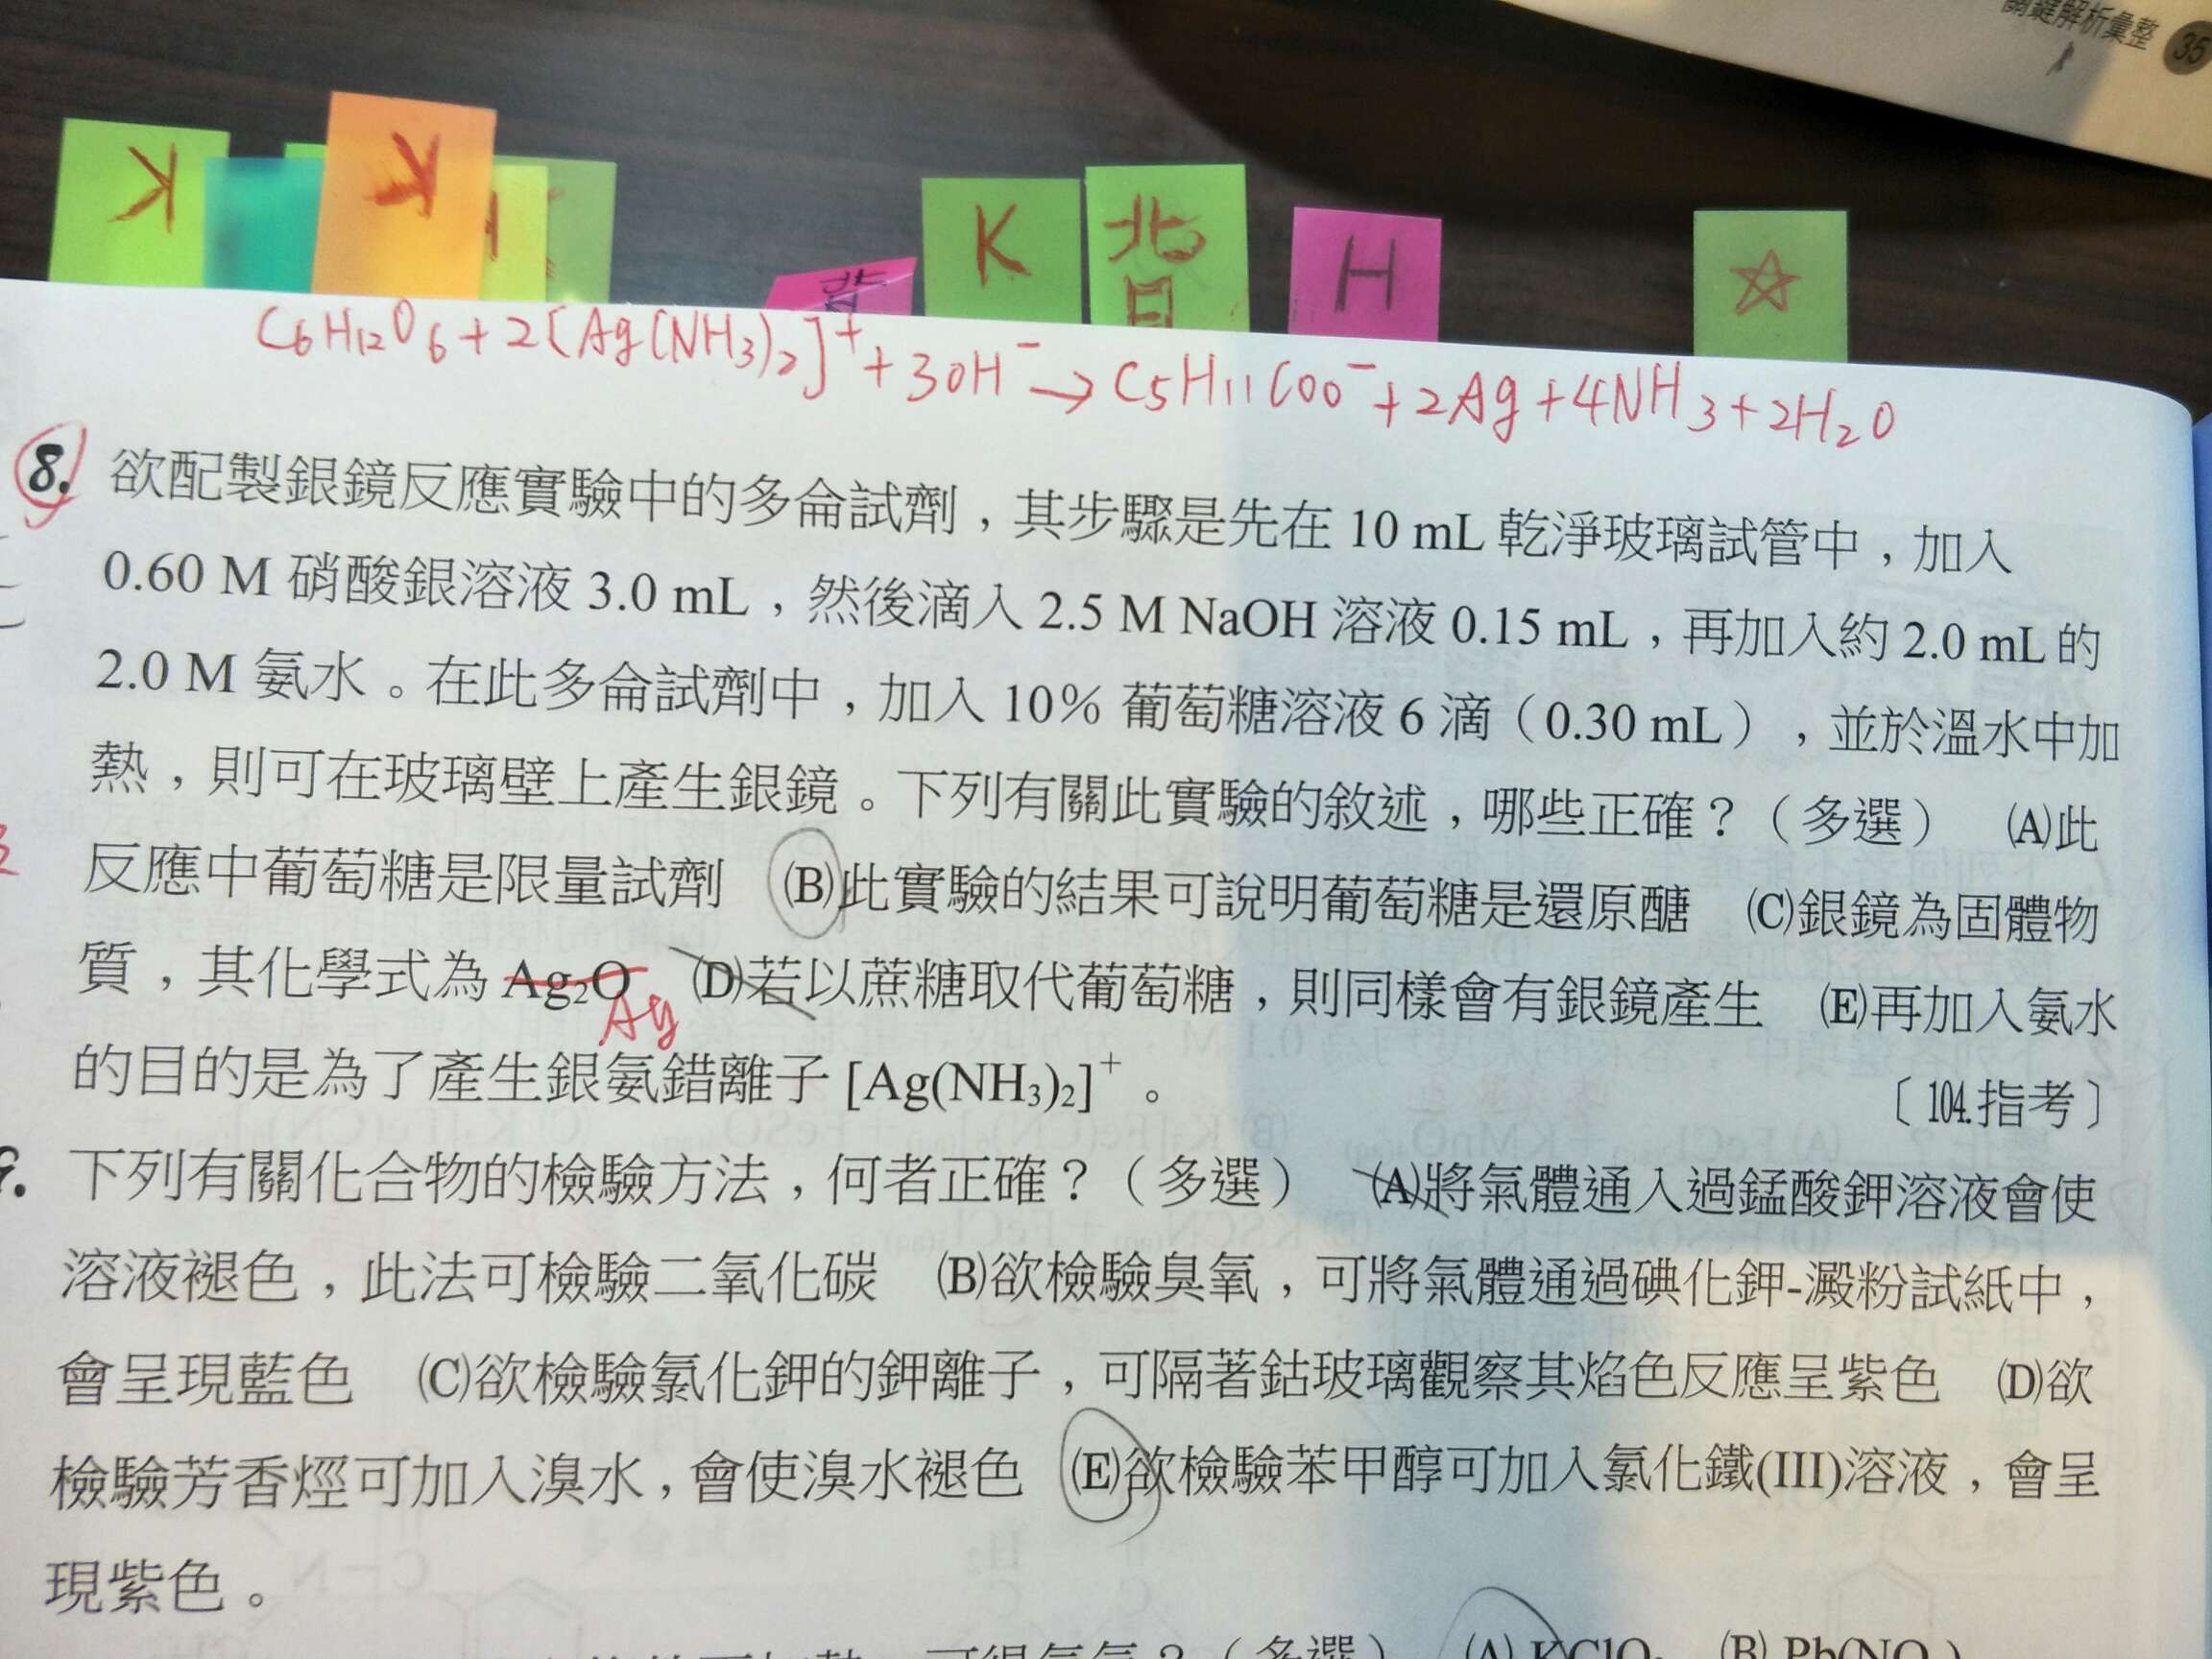 關鍵解析彙整 35
K
K
K
北
月
H
☆
C6H12O6+2[Ag(NH3)2]⁺+3OH⁻→C5H11COO⁻+2Ag+4NH3+2H2O
8. 欲配製銀鏡反應實驗中的多侖試劑，其步驟是先在 10 mL 乾淨玻璃試管中，加入
0.60 M 硝酸銀溶液 3.0 mL，然後滴入 2.5 M NaOH 溶液 0.15 mL，再加入約 2.0 mL 的
2.0 M 氨水。在此多侖試劑中，加入 10% 葡萄糖溶液 6 滴（0.30 mL），並於溫水中加
熱，則可在玻璃壁上產生銀鏡。下列有關此實驗的敘述，哪些正確？（多選） (A)此
反應中葡萄糖是限量試劑 (B)此實驗的結果可說明葡萄糖是還原醣 (C)銀鏡為固體物
質，其化學式為 Ag2O (D)若以蔗糖取代葡萄糖，則同樣會有銀鏡產生 (E)再加入氨水
Ag
的目的是為了產生銀氨錯離子 [Ag(NH3)2]⁺。 〔104.指考〕
9. 下列有關化合物的檢驗方法，何者正確？（多選） (A)將氣體通入過錳酸鉀溶液會使
溶液褪色，此法可檢驗二氧化碳 (B)欲檢驗臭氧，可將氣體通過碘化鉀-澱粉試紙中，
會呈現藍色 (C)欲檢驗氯化鉀的鉀離子，可隔著鈷玻璃觀察其焰色反應呈紫色 (D)欲
檢驗芳香烴可加入溴水，會使溴水褪色 (E)欲檢驗苯甲醇可加入氯化鐵(III)溶液，會呈
現紫色。
（多選） (A) KClO3 (B) Pb(NO